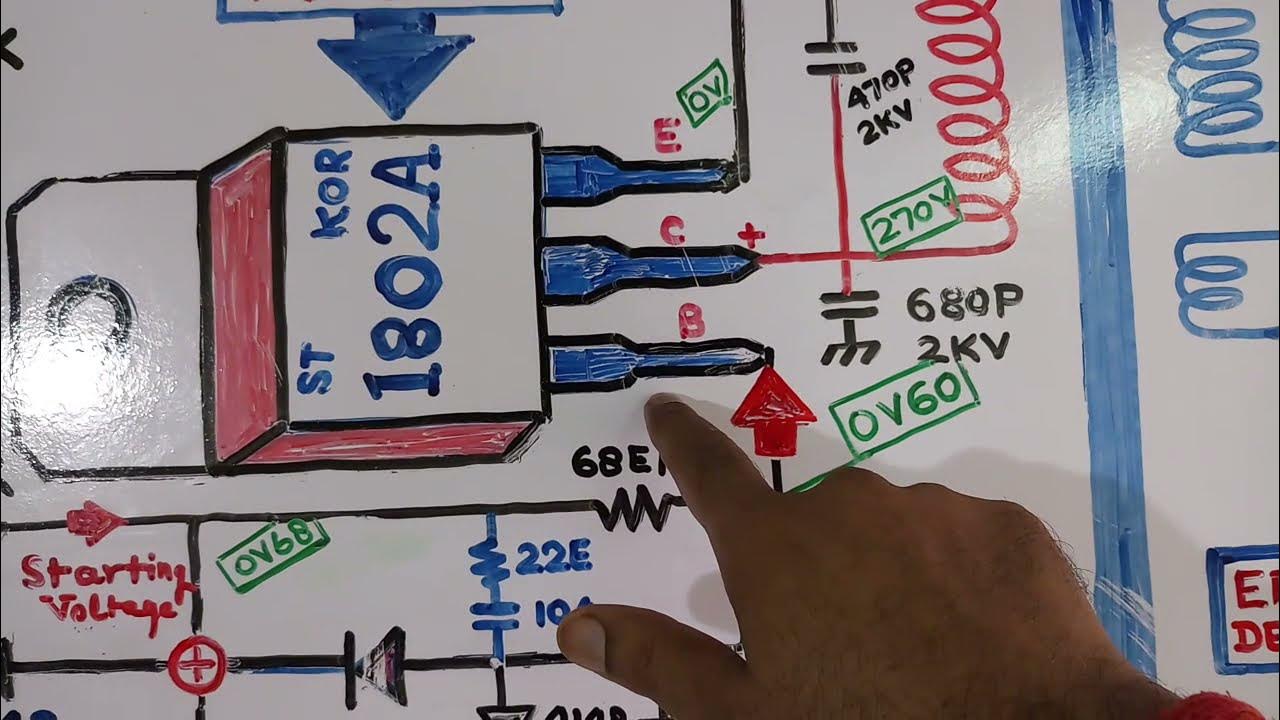 0V
E
470P
2KV
ST KOR
1802A
C
+
270V
B
680P
2KV
0V60
68E
0V68
Starting
Voltage
22E
+